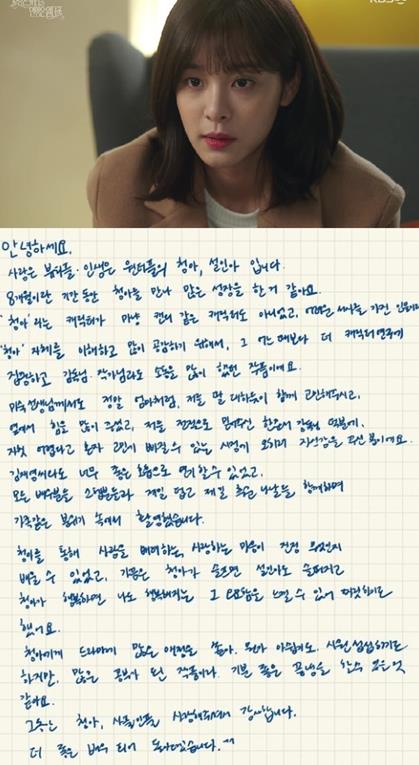 KBS
안녕하세요.
사랑은 뷰티풀·인생은 원더풀의 청아, 설인아 입니다.
8개월이란 기간동안 청아를 만나 많은 성장을 한거 같아요.
'청아'라는 캐릭터가 마냥 캔디 같은 캐릭터도 아니었고, 어려운 서사를 가진 인물이라
'청아' 자체를 이해하고 많이 공감하기 위해서, 그 어느때보다 더 캐릭터연구에
집중하고 감독님 작가님과도 소통을 많이 했던 작품이에요.
미숙선생님께서도 정말 엄마처럼, 저를 딸 대하듯이 함께 고민해주시고,
옆에서 힘을 많이 주셨고, 저를 전적으로 믿어주신 한준서 감독님 덕분에,
자칫 어렵다고 혼자 고민에 빠질 수 있는 시점에 오히려 자신감을 주신 분이에요.
김재영씨와도 너무 좋은 호흡으로 연기할 수 있었고,
모든 배우분들 스탭분들과 제일 덥고 제일 추운 나날들 함께하며
가족같은 분위기 속에서 촬영했습니다.
청아를 통해 사람을 배려하는, 사랑하는 마음이 진정 무엇인지
배울 수 있었고, 가끔은 청아가 슬프면 설인아도 슬퍼지고
청아가 행복하면 나도 행복해지는 그 묘함을 느낄 수 있어 따뜻하기도
했어요.
청아에게 드라마에 많은 애정을 쏟아, 뭔가 아쉽기도, 시원섭섭하기도
하지만, 많은 공부가 된 작품이라 기분 좋은 끝맺을 할수 있을것
같아요.
그동안 청아, 사풀인풀을 사랑해주셔서 감사합니다.
더 좋은 배우 되어 돌아오겠습니다. ^^